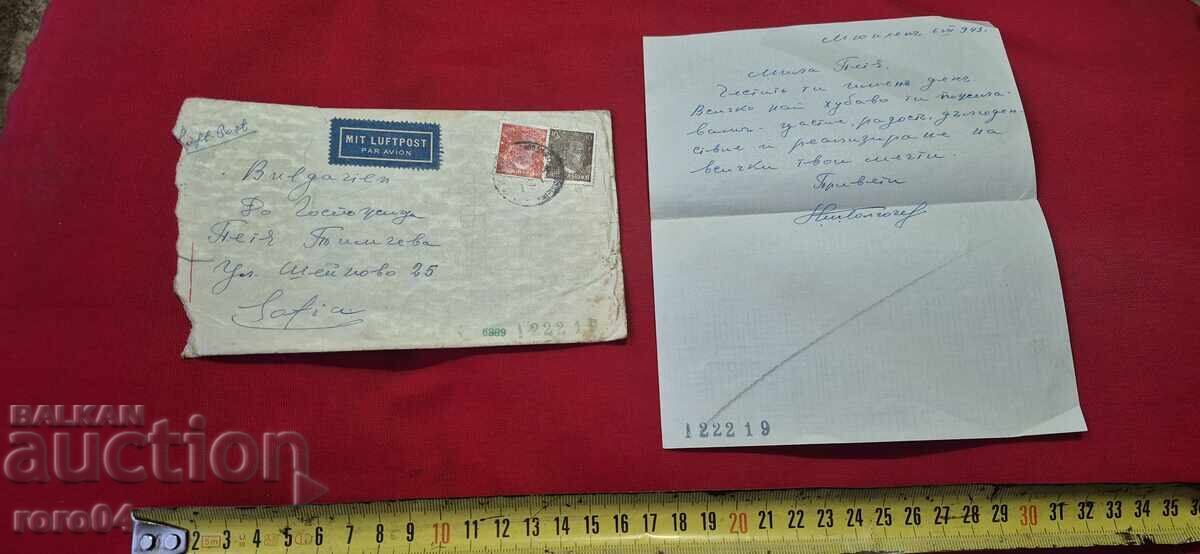 Luft Post
MIT LUFTPOST
PAR AVION
Bulgarien
До Госпожица
Петя
Ул. Шейново 25
Sofia
6989 12221
Мила Петя,
Честитъ ти имененъ денъ
Всичко най хубаво ти пожела-
вамъ - щастие, радость, дългоден-
ствие и реализиране на
всички твои мечти.
Привети
122219
BALKAN
auction
roro04
2 3 4 5 6 7 8 9 10 11 12 13 14 15 16 17 18 19 20 21 22 23 24 25 26 27 28 29 30 31 32 33 34 35